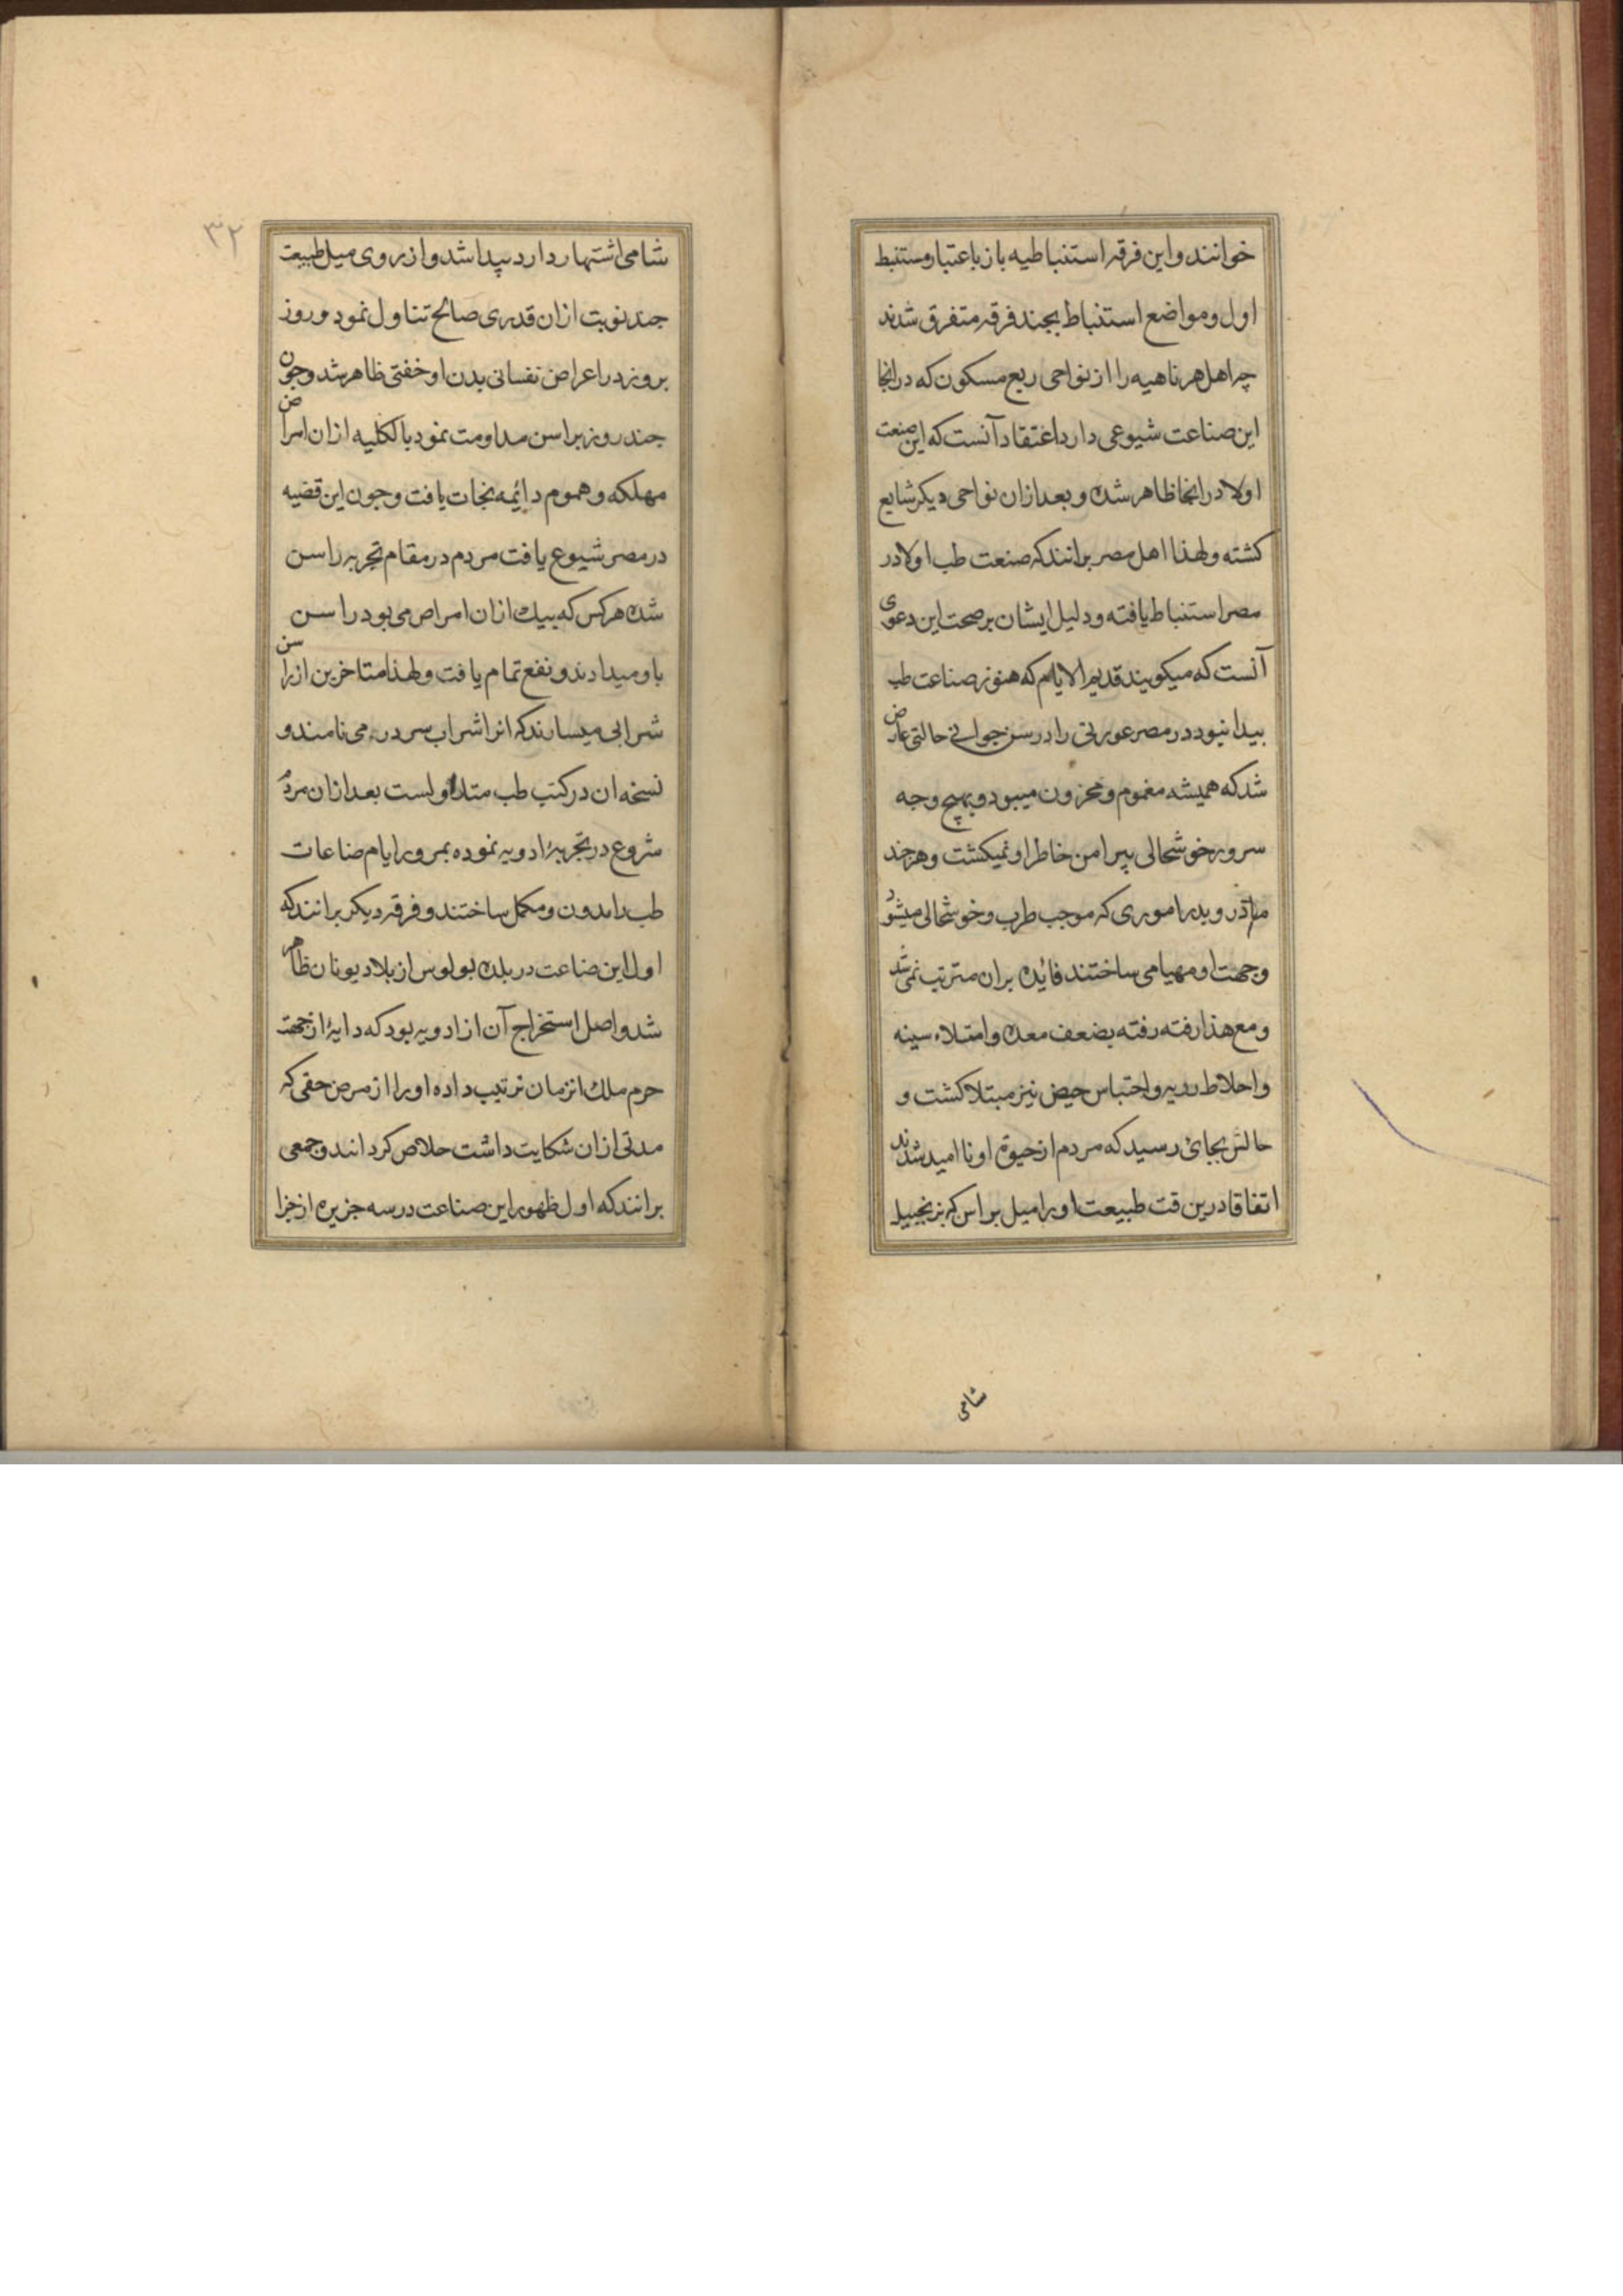 خوانند و این فرقه استنباطیه باز باعتبار مستنبط
اول و مواضع استنباط بچند فرقه متفرق شدند
چه اهل هر ناهیه را از نواحی ربع مسکون که در انجا
این صناعت شیوعی دارد اعتقاد آنست که این صنعت
اولا در انجا ظاهر شده و بعد از ان نواحی دیکر شایع
کشته و لهذا اهل مصر برانند که صنعت طب اولا در
مصر استنباط یافته و دلیل ایشان بر صحت این دعوی
آنست که میکویند قدیم الایام که هنوز صناعت طب
پیدا نبود در مصر عورتی را در سن جوانی حالتی عارض
شد که همیشه مغموم و محزون میبود و بهیچ وجه
سرور خوشحالی پیرامن خاطر او نمیکشت و هرچند
مادر و پدر اموری که موجب طرب و خوشحالی میشود
و جهت او مهیا می ساختند فائده بران مترتب نمی شد
و مع هذا رفته رفته بضعف معده و امتلاء سینه
و احلاط ردیه و احتباس حیض نیز مبتلا کشت و
حالش بجائ رسید که مردم از حیوة او نا امید شدند
اتفاقا درین قت طبیعت او را میل براس که بزنجبیل
شامی
۳۲
شامی اشتهار دارد پیدا شد و از روی میل طبیعت
جند نوبت از ان قدری صالح تناول نمود و روز
بروز در اعراض نفسانی بدن او خفتی ظاهر شد و جون
جند روز براسن مداومت نمود بالکلیه از ان امراض
مهلکه و هموم دائمه نجات یافت و جون این قضیه
در مصر شیوع یافت مردم در مقام تجربه راسن
شده هر کس که بیک از ان امراض می بود راسن
باو میدادند و نفع تمام یافت و لهذا متاخرین از راسن
شرابی میسازند که انرا شراب سردر می نامند و
نسخه ان در کتب طب متداولست بعد از ان مردم
شروع در تجربۀ ادویه نموده بمرور ایام صناعات
طب را مدون و مکمل ساختند و فرقه دیکر برانند که
اول این صناعت در بلده بولوس از بلاد یونان ظاهر
شد و اصل استخراج آن از ادویه بود که دایۀ از جهة
حرم ملك انزمان ترتیب داده او را از مرض حقی که
مدتی از ان شکایت داشت حلاص کردانند و جمعی
برانند که اول ظهور این صناعت در سه جزیره از جزا